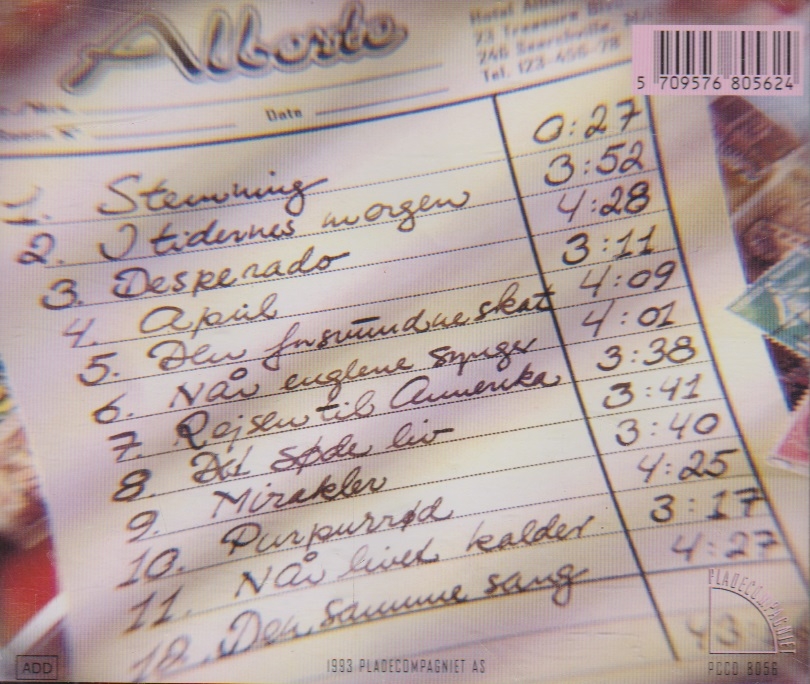 Alberto
Hotel
23 Treasure
246
Tel. 123-456-78
5 709576 805624
Date
1. Stemning 0:27
2. I tidernes morgen 3:52
3. Desperado 4:28
4. April 3:11
5. Den forsvundne skat 4:09
6. Når englene synger 4:01
7. Rejsen til Amerika 3:38
8. Det søde liv 3:41
9. Mirakler 3:40
10. Purpurrød 4:25
11. Når livet kalder 3:17
12. Den samme sang 4:27
PLADECOMPAGNIET
ADD
1993 PLADECOMPAGNIET AS
PCCD 8056